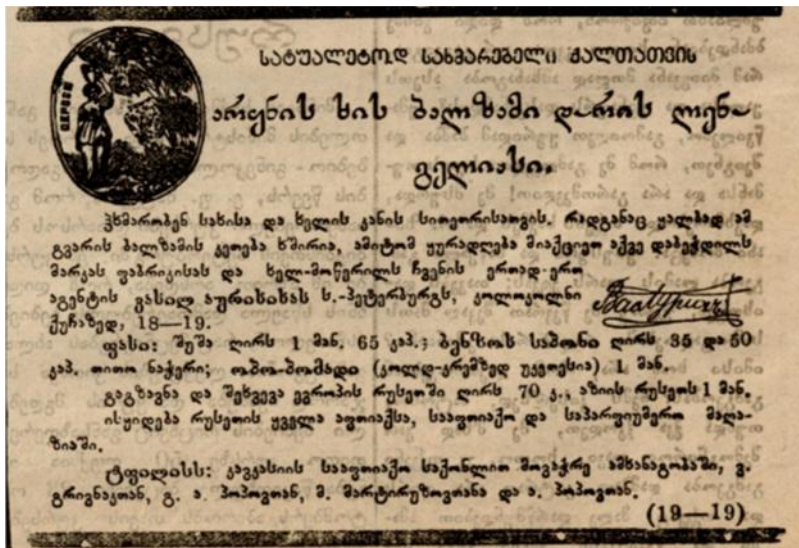 სატუალეტოდ სახმარებელი ქალთათვის
არყნის ხის ბალზამი დ-როს ლენ-
გელიასი.
ჰხმარობენ სახისა და ხელის კანის სითეთრისათვის. რადგანაც ყალბად ამ
გვარის ბალზამის კეთება ხშირია, ამიტომ ყურადღება მიაქციეთ აქვე დაბეჭდილს
მარკას ფაბრიკისას და ხელ-მოწერილს ჩვენის ერთად-ერთ
აგენტის ვასილ აურისისას ს.-პეტერბურგს, კოლოკოლნი
ქუჩაზედ, 18—19.
ფასი: შუშა ღირს 1 მან. 65 კაპ.; ბენზოს საპონი ღირს 35 და 50
კაპ. თითო ნაჭერი; ოპო-პომადი (კოლდ-კრემზედ უკეთესია) 1 მან.
გაგზავნა და შეხვევა ევროპის რუსეთში ღირს 70 კ., აზიის რუსეთს 1 მან.
ისყიდება რუსეთის ყველა აფთიაქსა, სააფთიაქო და საპარფიუმერო მაღა-
ზიაში.
ტფილისს: კავკასიის სააფთიაქო საქონლით მოვაჭრე ამხანაგობაში, ვ.
გრიგნაკთან, გ. ა. პოპოვთან, მ. მარტირუზოვთანა და ა. პოპოვთან.
(19—19)